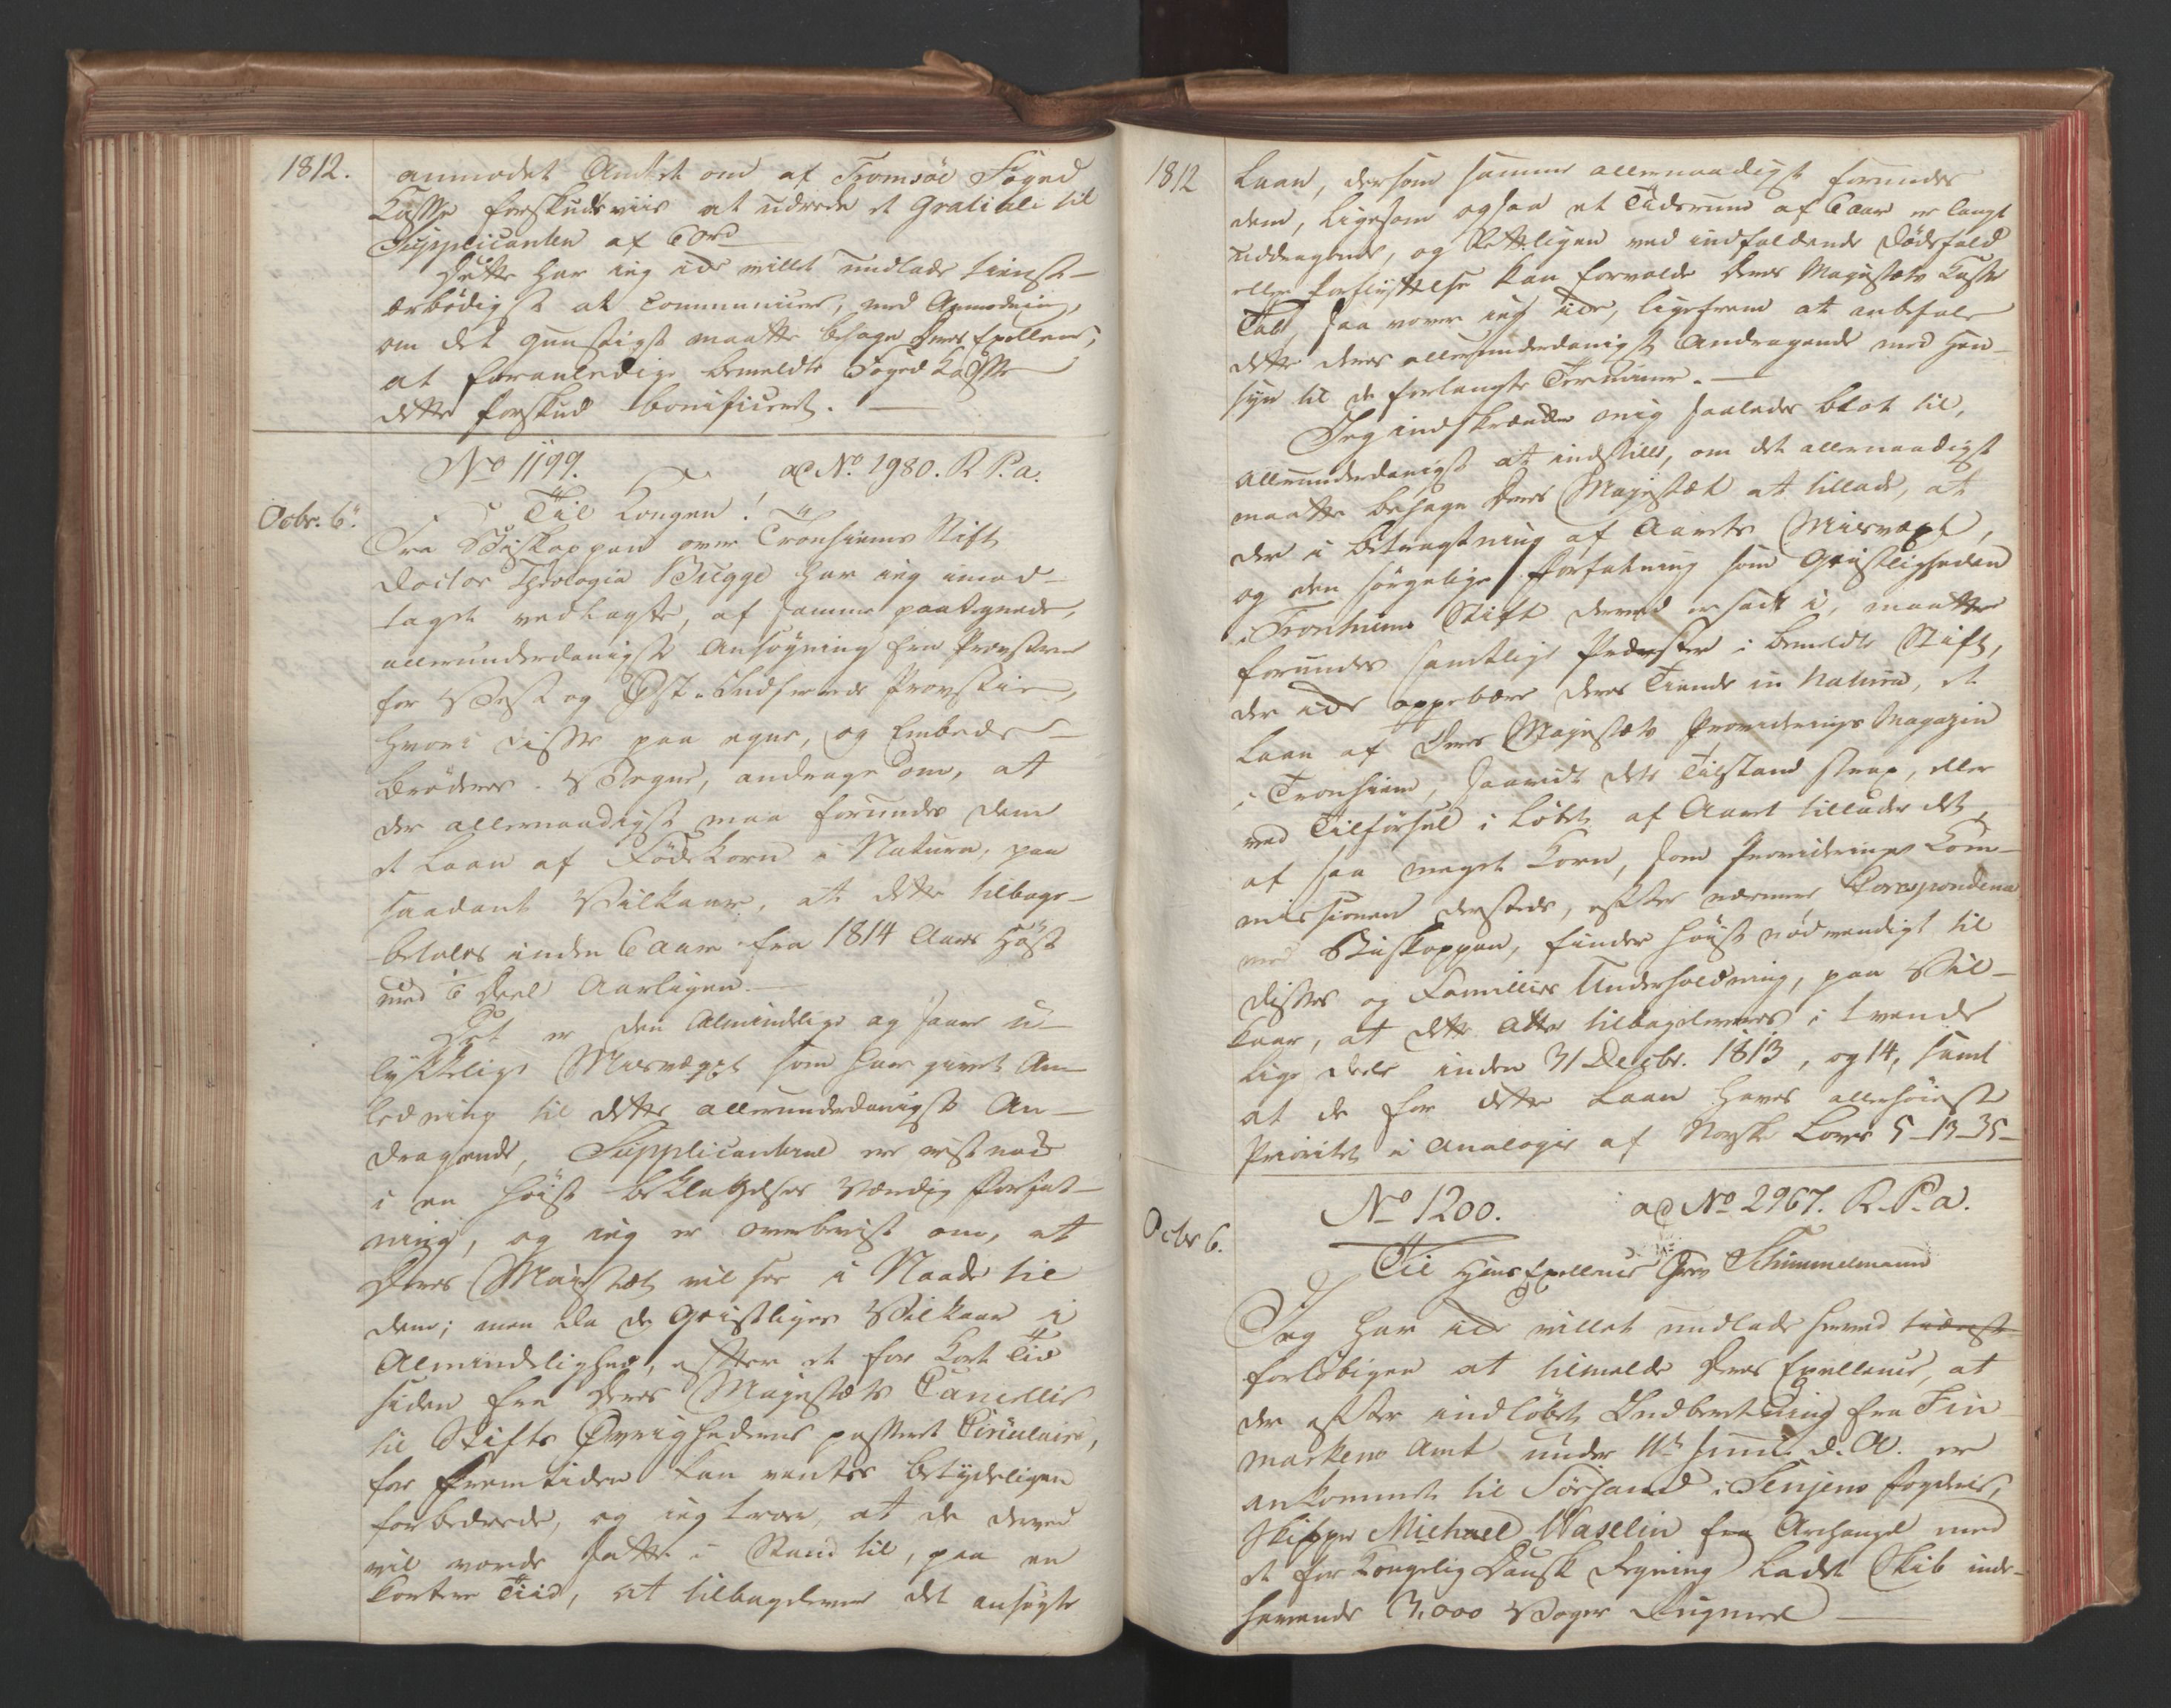 1812.
anmodet Amtet om af Tromsøe Foged
Kasse forskudsviis at udrede et Gratiale til
Supplicanten af 60 rd
Dette har jeg ikke villet undlade tienst-
ærbødigst at communicere, med Anmodning,
om det gunstigst maatte behage Deres Excellence,
at foranledige bemeldte Foged Kasse
dette Forskud bonificeret. —
No 1199. ad No. 1980. R. P. a.
Octbr. 6.
Til Kongen!
Fra Biskoppen over Tronhiems Stift
Doctor Theologiæ Bugge har jeg imod-
taget vedlagte, af samme paategnede,
allerunderdanigste Ansøgning fra Provsterne
for Vest og Øst-Indherreds Provstier,
hvori disse paa egne, og Embeds-
Brødres Vegne, andrage om, at
der allernaadigst maa forundes dem
et Laan af Fødekorn in Natura, paa
saadant Vilkaar, at dette tilbage-
betales inden 6 Aar fra 1814 Aars Høst
med 1/6 Deel Aarligen. —
Det er den almindelige og saare u-
lykkelige Misvæxt som har givet An-
ledning til dette allerunderdanigste An-
dragende, Supplicanterne ere vistnok
i en høist beklagelses værdig Forfat-
ning, og jeg er overbevist om, at
Deres Majestæt vil see i Naade til
dem; men da de Geistliges Vilkaar i
Almindelighed, efter et for kort Tid
siden fra Deres Majestæts Cancellie
til Stifts Øvrighederne passeret Circulaire,
for Fremtiden kan ventes betydeligen
forbedrede, og jeg troer, at de derved
vil vorde satte i Stand til, paa en
kortere Tiid, at tilbagelevere det ansøgte
1812
Laan, dersom samme allernaadigst forundes
dem, ligesom ogsaa et Tidsrum af 6 Aar er langt
uddragende, og lætteligen ved indfaldende Dødsfald
eller Forflyttelse kan forvolde Deres Majestæts Kasse
Tab, saa vover jeg ikke, ligefrem at anbefale
dette deres allerunderdanigste Andragende med Hen-
syn til de forlangte Terminer. —
Jeg indskrænker mig saaledes blot til,
allerunderdanigst at indstille, om det allernaadigst
maatte behage Deres Majestæt at tillade, at
der i Betragtning af Aarets Misvæxt,
og den sørgelige Forfatning som Geistligheden
i Tronhiems Stift derved er sadt i, maatte
forundes samtlige Præster i bemeldte Stift,
der ikke oppebære deres Tiende in Natura, et
Laan af Deres Majestæts Provideringsmagazin
i Tronhiem, saavidt dets Tilstand strax, eller
ved Tilførsel i Løbet af Aaret tillader det,
af saa meget Korn, som Provideringscom-
missionen dersteds, efter nærmere Correspondence
med Biskoppen, finder høist nødvendigt til
disses og Familiers Underholdning, paa Vil-
kaar, at dette atter tilbageleveres i tvende
lige Deele inden 31 Decbr. 1813, og 14, samt
at de for dette Laan haves allerhøieste
Prioritet i Analogie af Norske Lovs 5-13-35-
No 1200. ad No 2967. R. P. a.
Octbr 6.
Til Hans Excellence Grev Schimmelmann
Jeg har ikke villet undlade herved tienst
forløbigen at tilmelde Deres Excellence, at
der efter indløbet Indberetning fra Fin-
markens Amt under 11te Junii d. A. er
ankommet til Sørsand i Senjens Fogderie,
Skipper Michael Waselin fra Archangel med
et for Kongelig Dansk Regning ladet Skib inde-
havende 3,000 Voger Rugmeel —